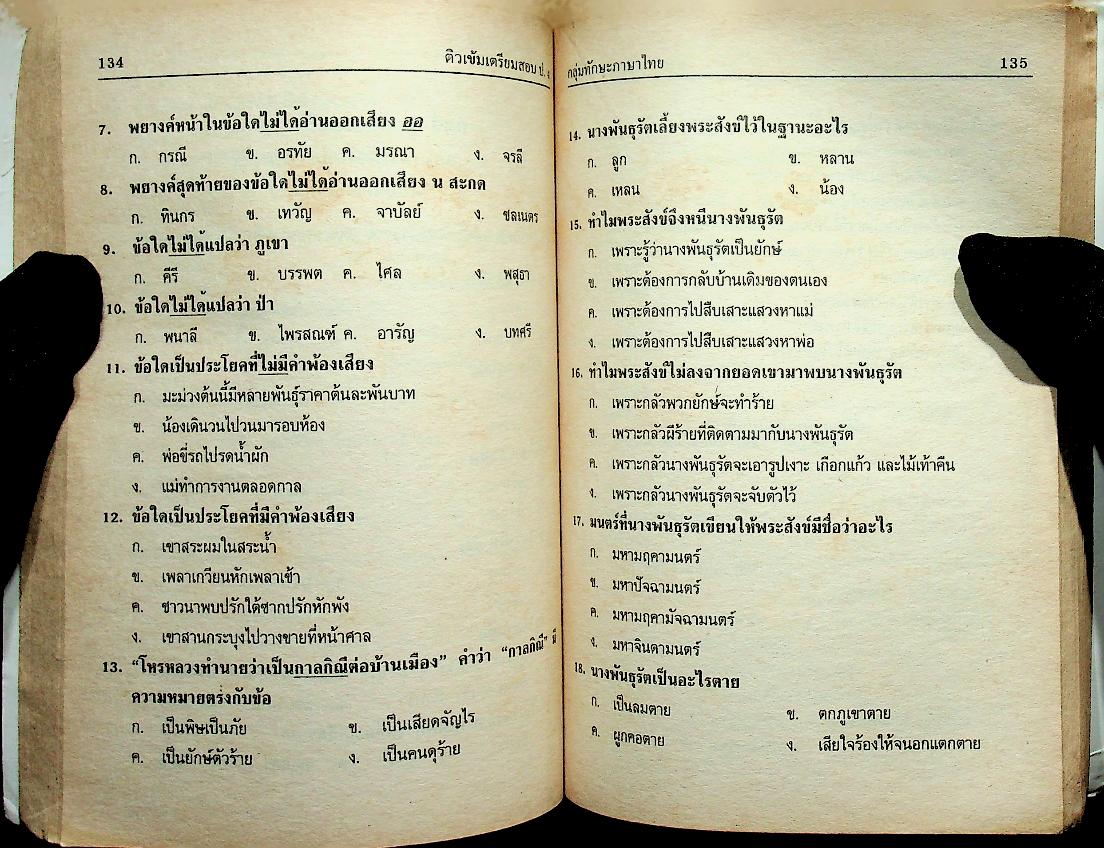 134 ติวเข้มเตรียมสอบ ป.
7. พยางค์หน้าในข้อใดไม่ได้อ่านออกเสียง ออ
ก. กรณี ข. อรทัย ค. มรณา ง. จรลี
8. พยางค์สุดท้ายของข้อใดไม่ได้อ่านออกเสียง น สะกด
ก. ทินกร ข. เทวัญ ค. จาบัลย์ ง. ชลเนตร
9. ข้อใดไม่ได้แปลว่า ภูเขา
ก. คีรี ข. บรรพต ค. ไศล ง. พสุธา
10. ข้อใดไม่ได้แปลว่า ป่า
ก. พนาลี ข. ไพรสณฑ์ ค. อารัญ ง. บทศรี
11. ข้อใดเป็นประโยคที่ไม่มีคำพ้องเสียง
ก. มะม่วงต้นนี้มีหลายพันธุ์ราคาต้นละพันบาท
ข. น้องเดินวนไปวนมารอบห้อง
ค. พ่อขี่รถไปรดน้ำผัก
ง. แม่ทำการงานตลอดกาล
12. ข้อใดเป็นประโยคที่มีคำพ้องเสียง
ก. เขาสระผมในสระน้ำ
ข. เพลาเกวียนหักเพลาเช้า
ค. ชาวนาพบปรักใต้ซากปรักหักพัง
ง. เขาสานกระบุงไปวางขายที่หน้าศาล
13. “โหรหลวงทำนายว่าเป็นกาลกิณีต่อบ้านเมือง” คำว่า “กาลกิณี” มี
ความหมายตรงกับข้อ
ก. เป็นพิษเป็นภัย ข. เป็นเสียดจัญไร
ค. เป็นยักษ์ตัวร้าย ง. เป็นคนดุร้าย
กลุ่มทักษะภาษาไทย 135
14. นางพันธุรัตเลี้ยงพระสังข์ไว้ในฐานะอะไร
ก. ลูก ข. หลาน
ค. เหลน ง. น้อง
15. ทำไมพระสังข์จึงหนีนางพันธุรัต
ก. เพราะรู้ว่านางพันธุรัตเป็นยักษ์
ข. เพราะต้องการกลับบ้านเดิมของตนเอง
ค. เพราะต้องการไปสืบเสาะแสวงหาแม่
ง. เพราะต้องการไปสืบเสาะแสวงหาพ่อ
16. ทำไมพระสังข์ไม่ลงจากยอดเขามาพบนางพันธุรัต
ก. เพราะกลัวพวกยักษ์จะทำร้าย
ข. เพราะกลัวผีร้ายที่ติดตามมากับนางพันธุรัต
ค. เพราะกลัวนางพันธุรัตจะเอารูปเงาะ เกือกแก้ว และไม้เท้าคืน
ง. เพราะกลัวนางพันธุรัตจะจับตัวไว้
17. มนตร์ที่นางพันธุรัตเขียนให้พระสังข์มีชื่อว่าอะไร
ก. มหามฤคามนตร์
ข. มหาปัจฉามนตร์
ค. มหามฤคามัจฉามนตร์
ง. มหาจินดามนตร์
18. นางพันธุรัตเป็นอะไรตาย
ก. เป็นลมตาย ข. ตกภูเขาตาย
ค. ผูกคอตาย ง. เสียใจร้องไห้จนอกแตกตาย